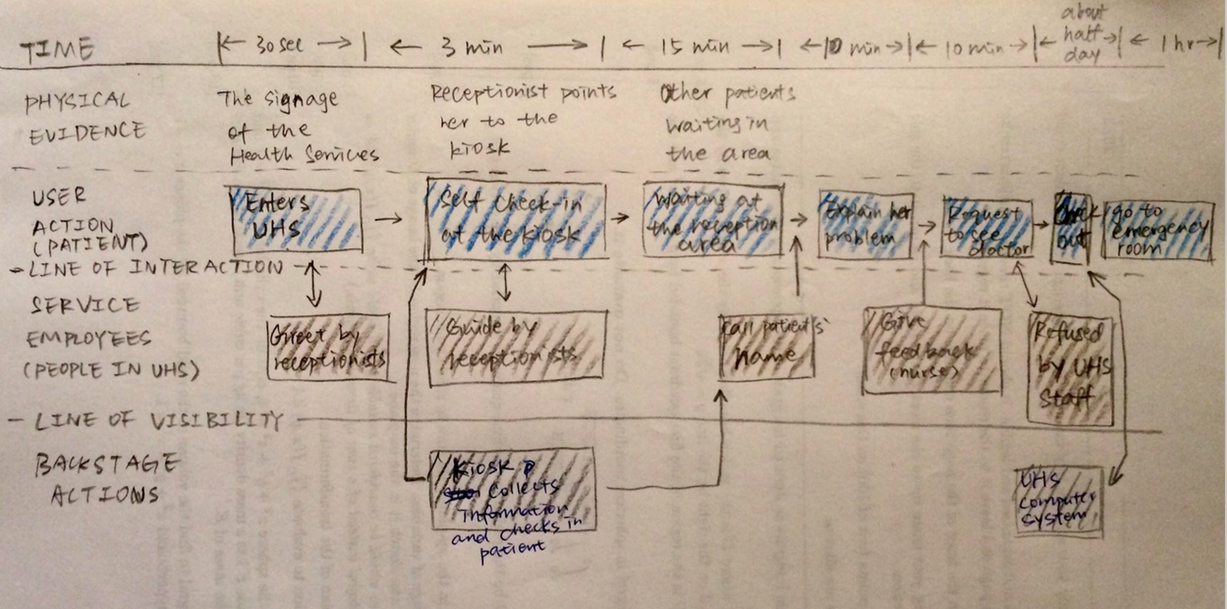 TIME
30 sec
3 min
15 min
10 min
10 min
about
half
day
1 hr
PHYSICAL
EVIDENCE
The signage
of the
Health Services
Receptionist points
her to the
kiosk
Other patients
waiting in
the area
USER
ACTION
(PATIENT)
Enters
UHS
Self check-in
at the kiosk
Waiting at
the reception
area
Explain her
problem
Request
to see
doctor
Check
out
go to
emergency
room
LINE OF INTERACTION
SERVICE
EMPLOYEES
(PEOPLE IN UHS)
Greet by
receptionists
Guide by
receptionists
Call patient's
name
Give
feedback
(nurse)
Refused
by UHS
staff
LINE OF VISIBILITY
BACKSTAGE
ACTIONS
Kiosk
collects
information
and checks in
patient
UHS
computer
system